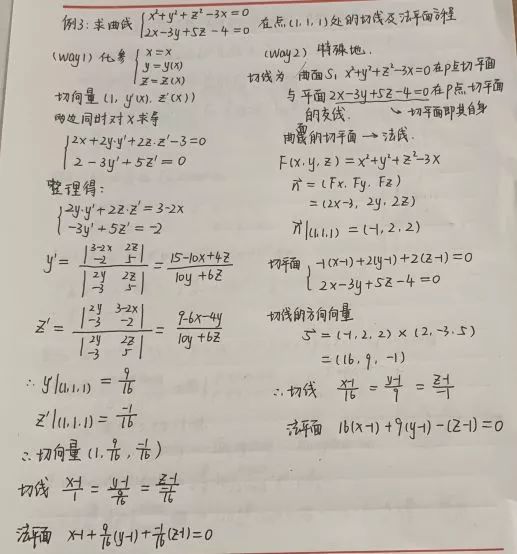 例3: 求曲线 { x²+y²+z²-3x=0 在点(1,1,1)处的切线及法平面方程
2x-3y+5z-4=0
(way1) 化参 { x=x
y=y(x)
z=z(x)
切向量 (1, y'(x), z'(x))
两边同时对x求导
{ 2x+2y·y'+2z·z'-3=0
2-3y'+5z'=0
整理得:
{ 2y·y'+2z·z'=3-2x
-3y'+5z'=-2
y' = |3-2x 2z; -2 5| / |2y 2z; -3 5| = (15-10x+4z)/(10y+6z)
z' = |2y 3-2x; -3 -2| / |2y 2z; -3 5| = (9-6x-4y)/(10y+6z)
∴ y|(1,1,1) = 9/16
z'|(1,1,1) = -1/16
∴ 切向量 (1, 9/16, -1/16)
切线 (x-1)/1 = (y-1)/(9/16) = (z-1)/(-1/16)
法平面 x-1+9/16(y-1)+-1/16(z-1)=0
(way2) 特殊地.
切线为 曲面S, x²+y²+z²-3x=0在P点切平面
与平面2x-3y+5z-4=0在P点切平面
的交线. ↘ 切平面即其自身
曲面的切平面 → 法线.
F(x,y,z) = x²+y²+z²-3x
n⃗ = (Fx, Fy, Fz)
= (2x-3, 2y, 2z)
n⃗|(1,1,1) = (-1, 2, 2)
切平面 { -1(x-1)+2(y-1)+2(z-1)=0
2x-3y+5z-4=0
切线的方向向量
s⃗ = (-1, 2, 2) × (2, -3, 5)
= (16, 9, -1)
∴ 切线 (x-1)/16 = (y-1)/9 = (z-1)/-1
法平面 16(x-1)+9(y-1)-(z-1)=0